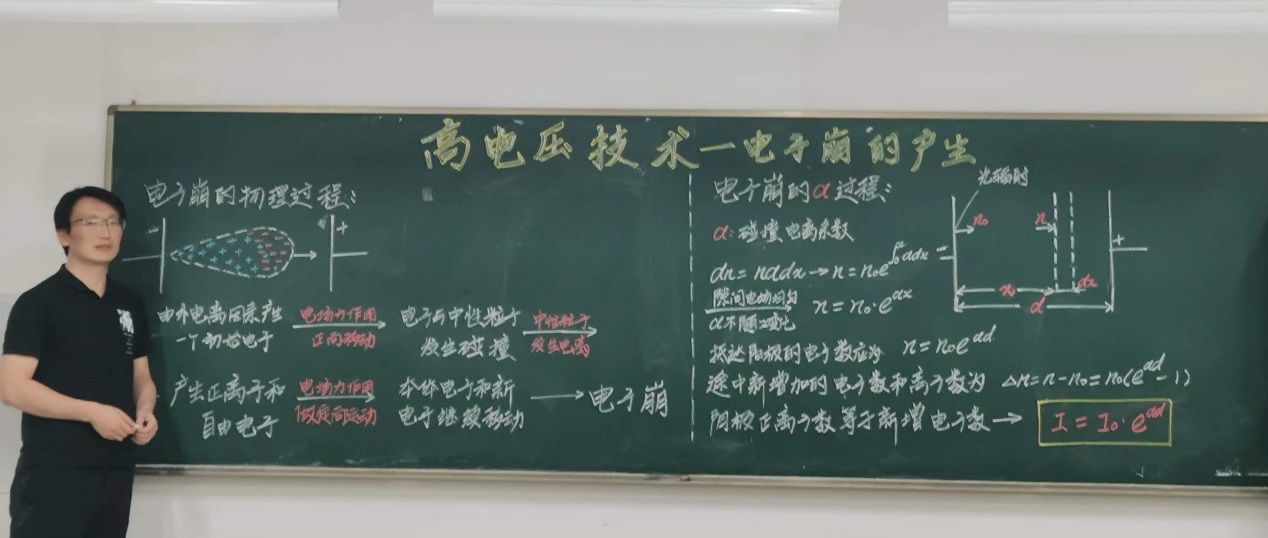 高电压技术—电子崩的产生
电子崩的物理过程:
- +
由外电离因素产生一个初始电子
电场力作用
正向移动
电子与中性粒子发生碰撞
中性粒子
发生电离
产生正离子和自由电子
电场力作用
做定向运动
本体电子和新电子继续移动
→ 电子崩
电子崩的α过程:
α:碰撞电离系数
dn=nαdx→n=n₀e^∫₀ˣαdx
隙间电场均匀
α不随x变化
n=n₀·e^αx
抵达阳极的电子数应为 n=n₀e^αd
途中新增加的电子数和离子数为 Δn=n-n₀=n₀(e^αd-1)
阳极正离子数等于新增电子数→ I=I₀·e^αd
光辐射
n₀ n
- +
x dx
d